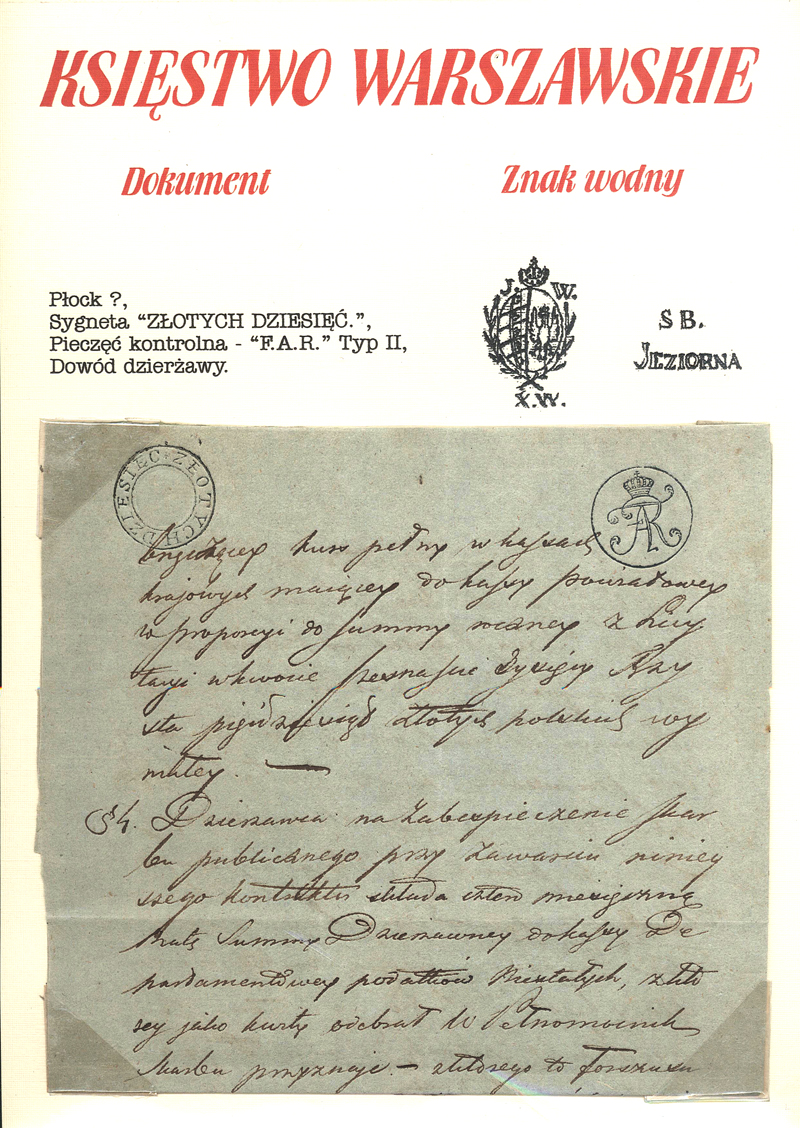 KSIĘSTWO WARSZAWSKIE
Dokument
Znak wodny
Płock ?,
Sygneta “ZŁOTYCH DZIESIĘĆ.”,
Pieczęć kontrolna - “F.A.R.” Typ II,
Dowód dzierżawy.
J. W.
X.W.
S B.
JEZIORNA
DZIESIĘC ZŁOTYCH
kurs pełny w kassach
krajowych maiącey do kassy powiatowey
w proporcyi do summy roczney z Licy
tacyi w kwocie szesnaście Tysięcy Trzy
sta pięćdziesiąt złotych polskich wy
nikłey. —
§ 4. Dzierzawca na Zabezpieczenie skar
bu publicznego przy zawarciu niniey
szego kontraktu składa cztero miesięczną
Ratę Summy Dzierzawney do kassy De
partamentowey podatków Niestałych, z któ
rey jako kwotę odebrał W Pełnomocnik
skarbu przyznaje — z którego to forszusu